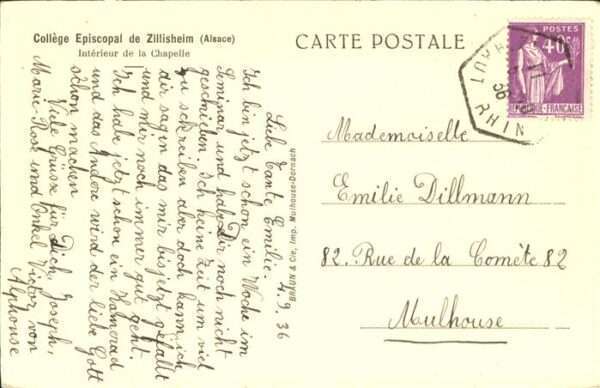 Collège Episcopal de Zillisheim (Alsace)
Intérieur de la Chapelle
CARTE POSTALE
POSTES
40c
FRANÇAISE
HAUT
RHIN
36
4. 9. 36
Liebe Tante Emilie.
Ich bin jetzt schon ein Woche im
Seminar, und habe Dir noch nicht
geschrieben. Ich keine Zeit um viel
zu schreiben aber doch kann ich
dir sagen das mir bis jetzt gefällt
und mir noch immer gut geht.
Ich habe jetzt schon ein Kamerad
und das Andere wird der liebe Gott
schon machen
Viele Grüsse für Dich, Joseph,
Marie-Rose und Onkel Victor von
Alphonse
BRAUN & Cie, Imp. Mulhouse-Dornach
Mademoiselle
Emilie Dillmann
82. Rue de la Comète 82
Mulhouse